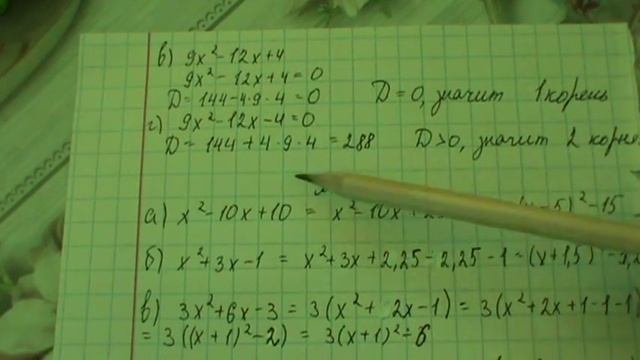 в) 9x²-12x+4
9x²-12x+4=0
D=144-4·9·4=0 D=0, значит 1 корень
г) 9x²-12x-4=0
D=144+4·9·4=288 D>0, значит 2
а) x²-10x+10 = x²-10x+ -5)²-15
б) x²+3x-1 = x²+3x+2,25-2,25-1=(x+1,5)²
в) 3x²+6x-3=3(x²+2x-1)=3(x²+2x+1-1-1)
=3((x+1)²-2)=3(x+1)²-6